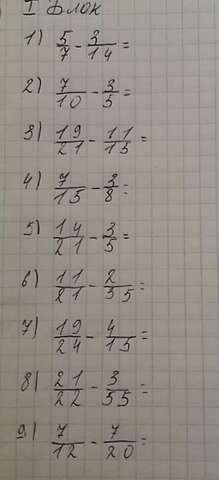 I Блок
1) 5/7 - 3/14 =
2) 7/10 - 3/5 =
3) 19/21 - 11/15 =
4) 7/15 - 3/8 =
5) 14/21 - 3/5 =
6) 11/21 - 2/35 =
7) 19/24 - 4/15 =
8) 21/22 - 3/55 =
9) 7/12 - 7/20 =